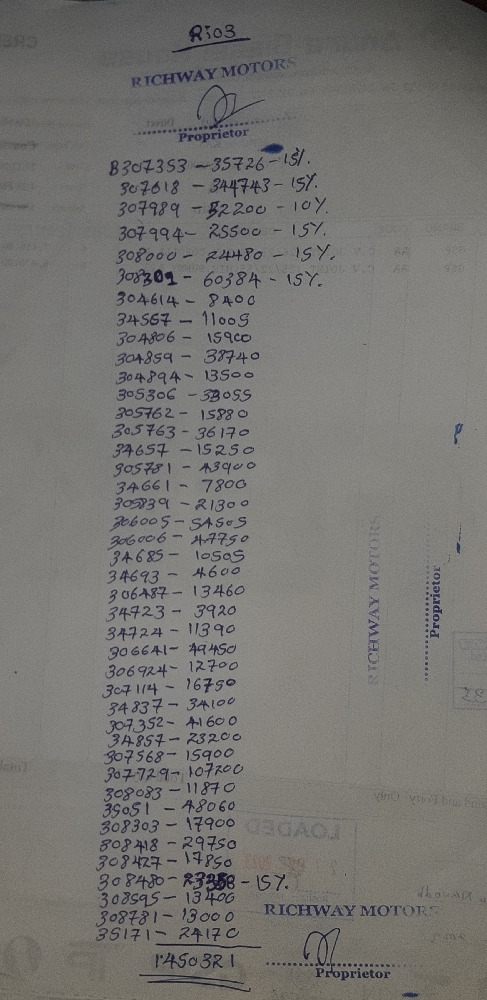 Rio3
RICHWAY MOTORS
Proprietor
B307353 - 35726 - 15%.
307618 - 344743 - 15%.
307989 - 52200 - 10%.
307994 - 25500 - 15%.
308000 - 24480 - 15%.
308301 - 60384 - 15%.
304614 - 8400
34567 - 11005
304806 - 15900
304859 - 38740
304894 - 13500
305306 - 33055
305762 - 15880
305763 - 36170
34657 - 15250
305781 - 43900
34661 - 7800
305839 - 21300
306005 - 54505
306006 - 47750
34685 - 10505
34693 - 4600
306487 - 13460
34723 - 3920
34724 - 11390
306641 - 49450
306924 - 12700
307114 - 16750
34837 - 34100
307352 - 41600
34857 - 23200
307568 - 15900
307729 - 107200
308083 - 11870
35051 - 48060
308303 - 17900
308418 - 29750
308427 - 17850
308480 - - 15%.
308595 - 13400
308781 - 13000
35171 - 24170
1450321
RICHWAY MOTORS
Proprietor
RICHWAY MOTORS
Proprietor
LOADED